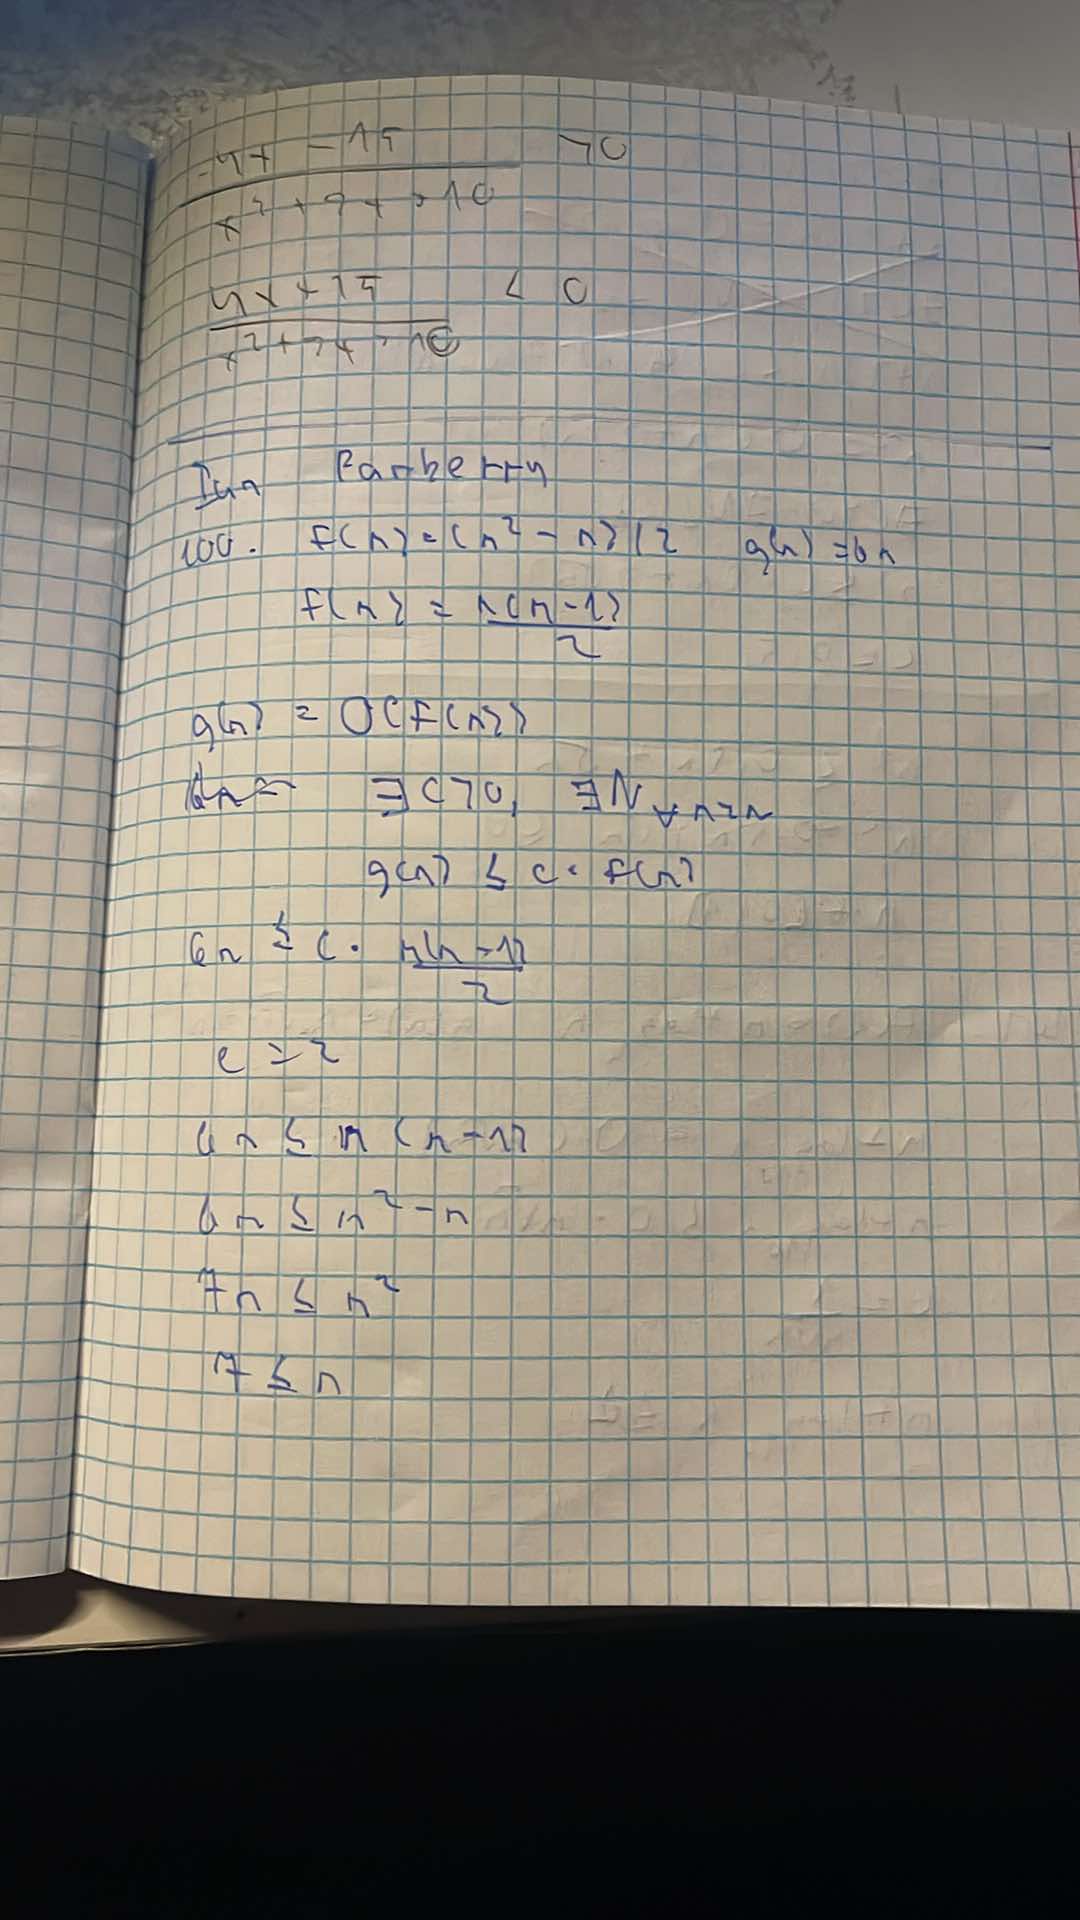 -4x - 15 > 0
x² + 7x + 10
4x + 15 < 0
x² + 7x + 10
Ian Parberry
100. f(n) = (n² - n)/2 g(n) = 6n
f(n) = n(n-1)
2
g(n) = O(f(n))
∃ c>0, ∃N ∀ n≥N
g(n) ≤ c · f(n)
6n ≤ c · n(n-1)
2
c = 2
6n ≤ n(n-1)
6n ≤ n² - n
7n ≤ n²
7 ≤ n